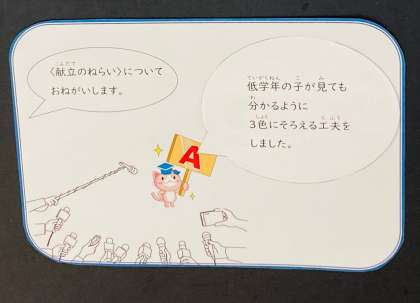 〈献立のねらい〉について
おねがいします。
低学年の子が見ても
分かるように
3色にそろえる工夫を
しました。
A